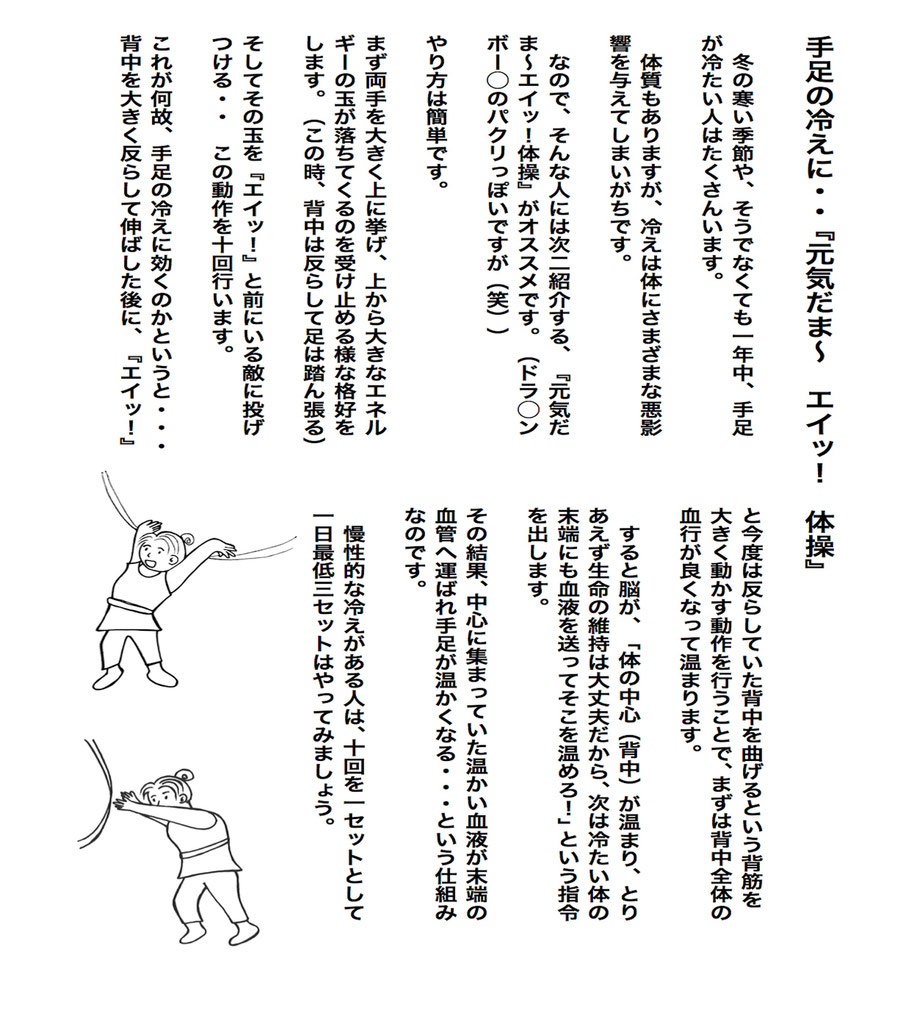 手足の冷えに・・『元気だま〜　エイッ！　体操』
　冬の寒い季節や、そうでなくても一年中、手足
が冷たい人はたくさんいます。
　体質もありますが、冷えは体にさまざまな悪影
響を与えてしまいがちです。
　なので、そんな人には次二紹介する、『元気だ
ま〜エイッ！体操』がオススメです。（ドラ◯ン
ボー◯のパクリっぽいですが（笑））
やり方は簡単です。
まず両手を大きく上に挙げ、上から大きなエネル
ギーの玉が落ちてくるのを受け止める様な格好を
します。（この時、背中は反らして足は踏ん張る）
そしてその玉を『エイッ！』と前にいる敵に投げ
つける・・　この動作を十回行います。
これが何故、手足の冷えに効くのかというと・・・
背中を大きく反らして伸ばした後に、『エイッ！』
と今度は反らしていた背中を曲げるという背筋を
大きく動かす動作を行うことで、まずは背中全体の
血行が良くなって温まります。
　すると脳が、「体の中心（背中）が温まり、とり
あえず生命の維持は大丈夫だから、次は冷たい体の
末端にも血液を送ってそこを温めろ！」という指令
を出します。
その結果、中心に集まっていた温かい血液が末端の
血管へ運ばれ手足が温かくなる・・・という仕組み
なのです。
　慢性的な冷えがある人は、十回を一セットとして
一日最低三セットはやってみましょう。